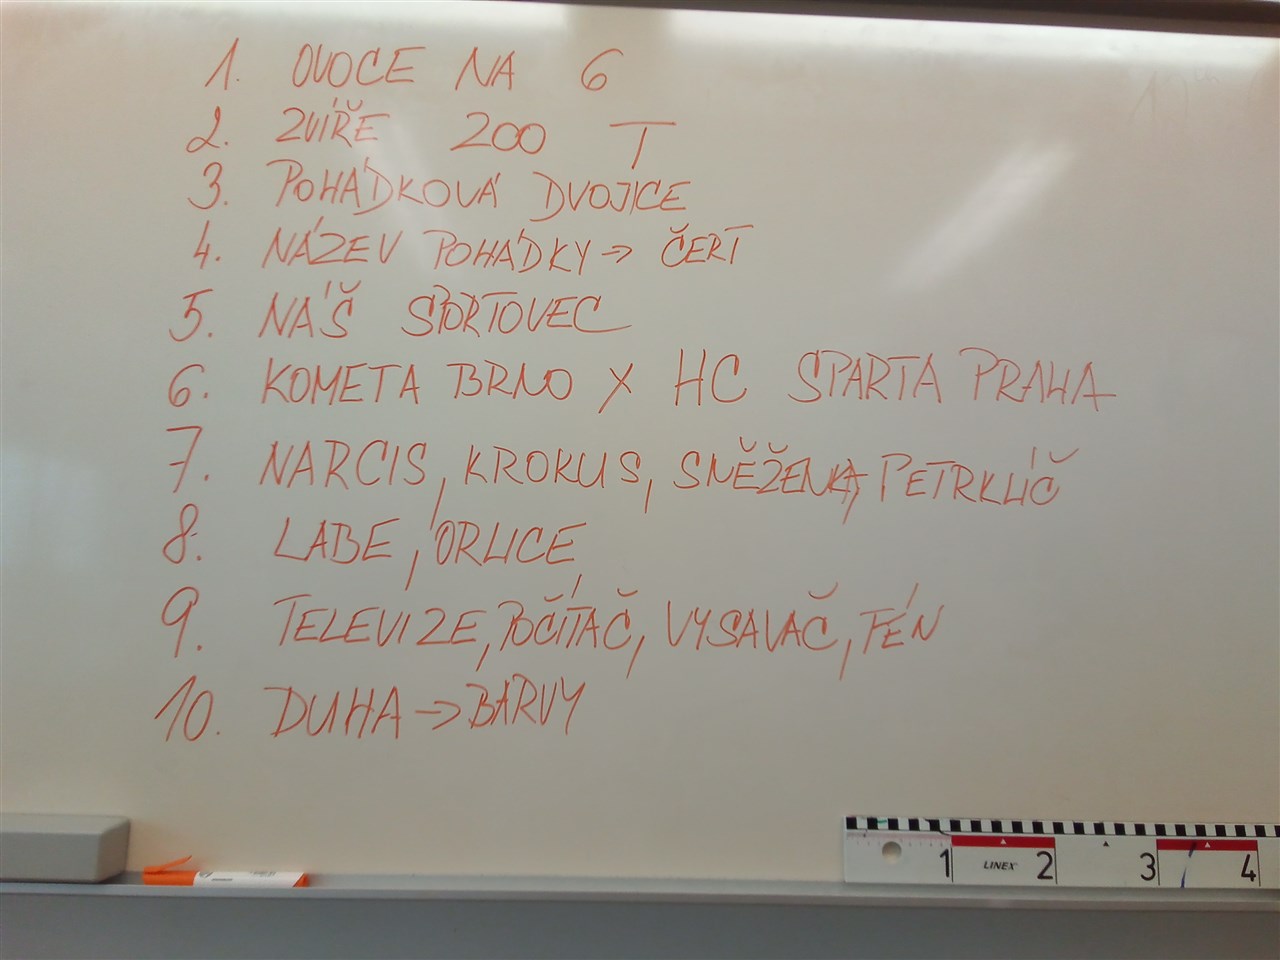 1. OVOCE NA 6
2. ZVÍŘE 200 T
3. POHÁDKOVÁ DVOJICE
4. NÁZEV POHÁDKY → ČERT
5. NÁŠ SPORTOVEC
6. KOMETA BRNO X HC SPARTA PRAHA
7. NARCIS, KROKUS, SNĚŽENKA, PETRKLÍČ
8. LABE, ORLICE
9. TELEVIZE, POČÍTAČ, VYSAVAČ, FÉN
10. DUHA → BARVY
1 LINEX 2 3 4